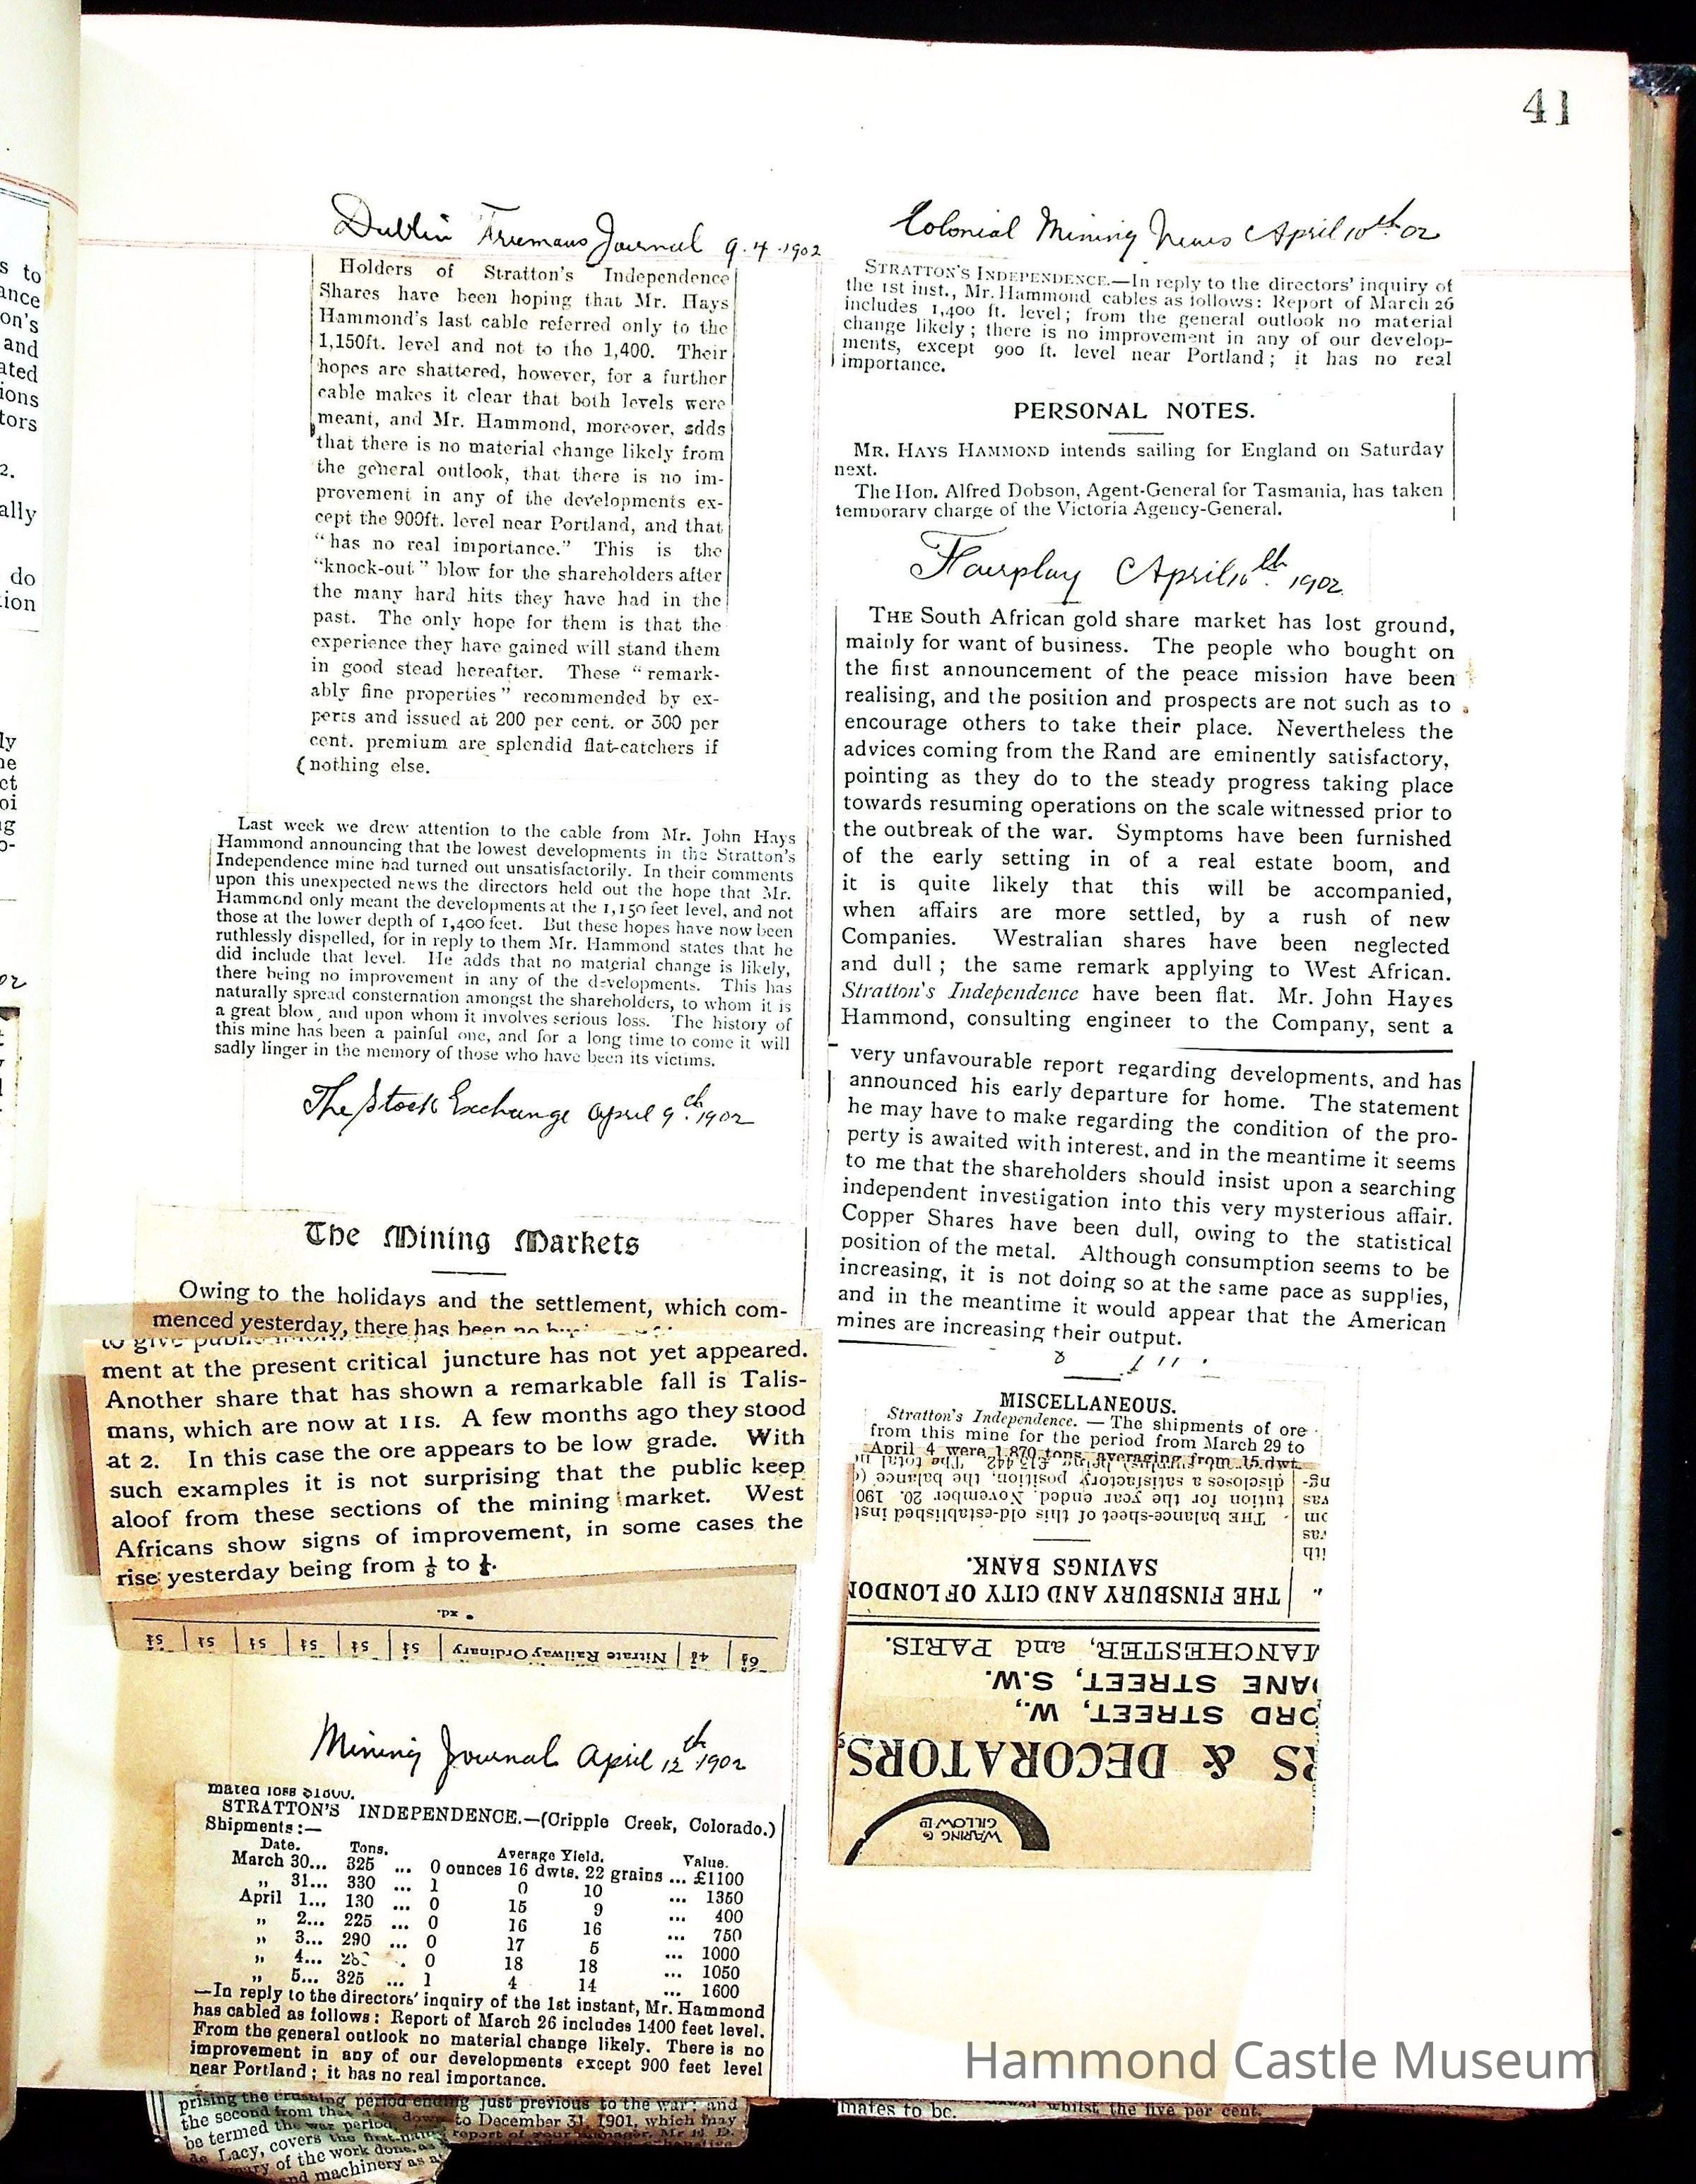 41
Dublin Freemans Journal 9.4.1902
Holders of Stratton's Independence
Shares have been hoping that Mr. Hays
Hammond's last cable referred only to the
1,150ft. level and not to the 1,400. Their
hopes are shattered, however, for a further
cable makes it clear that both levels were
meant, and Mr. Hammond, moreover, adds
that there is no material change likely from
the general outlook, that there is no im-
provement in any of the developments ex-
cept the 900ft. level near Portland, and that
"has no real importance." This is the
"knock-out" blow for the shareholders after
the many hard hits they have had in the
past. The only hope for them is that the
experience they have gained will stand them
in good stead hereafter. These "remark-
ably fine properties" recommended by ex-
perts and issued at 200 per cent. or 300 per
cent. premium are splendid flat-catchers if
nothing else.
Last week we drew attention to the cable from Mr. John Hays
Hammond announcing that the lowest developments in the Stratton's
Independence mine had turned out unsatisfactorily. In their comments
upon this unexpected news the directors held out the hope that Mr.
Hammond only meant the developments at the 1,150 feet level, and not
those at the lower depth of 1,400 feet. But these hopes have now been
ruthlessly dispelled, for in reply to them Mr. Hammond states that he
did include that level. He adds that no material change is likely,
there being no improvement in any of the developments. This has
naturally spread consternation amongst the shareholders, to whom it is
a great blow, and upon whom it involves serious loss. The history of
this mine has been a painful one, and for a long time to come it will
sadly linger in the memory of those who have been its victims.
The Stock Exchange April 9th 1902
The Mining Markets
Owing to the holidays and the settlement, which com-
menced yesterday, there has been no
to give
ment at the present critical juncture has not yet appeared.
Another share that has shown a remarkable fall is Talis-
mans, which are now at 11s. A few months ago they stood
at 2. In this case the ore appears to be low grade. With
such examples it is not surprising that the public keep
aloof from these sections of the mining market. West
Africans show signs of improvement, in some cases the
rise yesterday being from ⅛ to ¼.
* xd.
6¾ | 4¾ | Nitrate Railway Ordinary | 5¼ | 5¼ | 5¼ | 5¼ | 5¼ | 5¾
Mining Journal April 12th 1902
mated loss $1800.
STRATTON'S INDEPENDENCE.—(Cripple Creek, Colorado.)
Shipments:—
Date. Tons. Average Yield. Value.
March 30... 325 ... 0 ounces 16 dwts. 22 grains ... £1100
„ 31... 330 ... 1 0 10 ... 1350
April 1... 130 ... 0 15 9 ... 400
„ 2... 225 ... 0 16 16 ... 750
„ 3... 290 ... 0 17 5 ... 1000
„ 4... ... 0 18 18 ... 1050
„ 5... 325 ... 1 4 14 ... 1600
—In reply to the directors' inquiry of the 1st instant, Mr. Hammond
has cabled as follows: Report of March 26 includes 1400 feet level.
From the general outlook no material change likely. There is no
improvement in any of our developments except 900 feet level
near Portland; it has no real importance.
prising the crushing period ending just previous to the war; and
the second from to December 31, 1901, which may
be termed the war period
de Lacy, covers the first
of the work done
and machinery as a
Colonial Mining News April 10th 02
STRATTON'S INDEPENDENCE.—In reply to the directors' inquiry of
the 1st inst., Mr. Hammond cables as follows: Report of March 26
includes 1,400 ft. level; from the general outlook no material
change likely; there is no improvement in any of our develop-
ments, except 900 ft. level near Portland; it has no real
importance.
PERSONAL NOTES.
MR. HAYS HAMMOND intends sailing for England on Saturday
next.
The Hon. Alfred Dobson, Agent-General for Tasmania, has taken
temporary charge of the Victoria Agency-General.
Fairplay April 10th 1902
THE South African gold share market has lost ground,
mainly for want of business. The people who bought on
the first announcement of the peace mission have been
realising, and the position and prospects are not such as to
encourage others to take their place. Nevertheless the
advices coming from the Rand are eminently satisfactory,
pointing as they do to the steady progress taking place
towards resuming operations on the scale witnessed prior to
the outbreak of the war. Symptoms have been furnished
of the early setting in of a real estate boom, and
it is quite likely that this will be accompanied,
when affairs are more settled, by a rush of new
Companies. Westralian shares have been neglected
and dull; the same remark applying to West African.
Stratton's Independence have been flat. Mr. John Hayes
Hammond, consulting engineer to the Company, sent a
very unfavourable report regarding developments, and has
announced his early departure for home. The statement
he may have to make regarding the condition of the pro-
perty is awaited with interest, and in the meantime it seems
to me that the shareholders should insist upon a searching
independent investigation into this very mysterious affair.
Copper Shares have been dull, owing to the statistical
position of the metal. Although consumption seems to be
increasing, it is not doing so at the same pace as supplies,
and in the meantime it would appear that the American
mines are increasing their output.
MISCELLANEOUS.
Stratton's Independence.—The shipments of ore
from this mine for the period from March 29 to
April 4 were 1,870 tons, averaging from 15 dwt.
WARING & GILLOW LD
RS & DECORATORS,
ORD STREET, W.,
ANE STREET, S.W.
MANCHESTER, and PARIS.
THE FINSBURY AND CITY OF LONDON
SAVINGS BANK.
THE balance-sheet of this old-established inst
tution for the year ended November 20, 190
discloses a satisfactory position, the balance
mates to be.
whilst the five per cent.
s to
ance
on's
and
ated
ions
tors
2.
ally
do
ion
Hammond Castle Museum